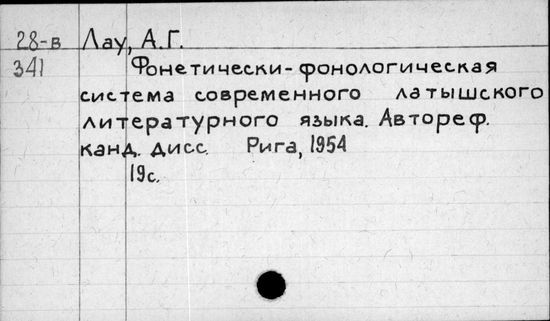 28-в Лау, А.Г.
341 Фонетически-фонологическая
система современного латышского
литературного языка. Автореф.
канд. дисс. Рига, 1954
19с.